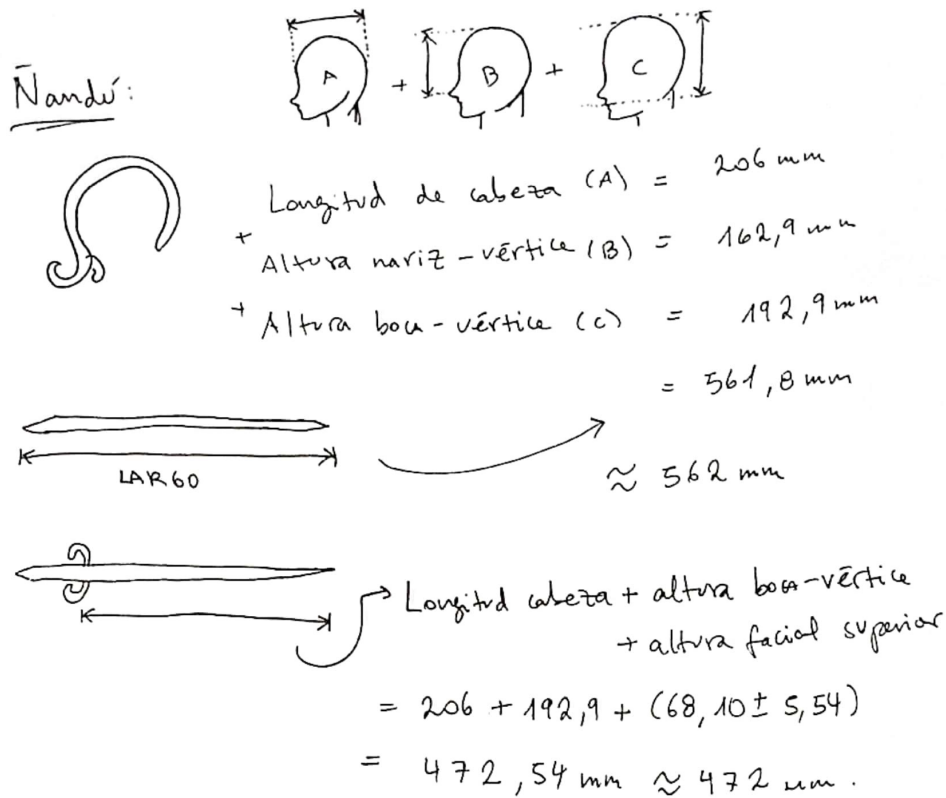 A + B + C
Ñandú:
Longitud de cabeza (A) = 206 mm
+ Altura nariz-vértice (B) = 162,9 mm
+ Altura boca-vértice (C) = 192,9 mm
= 561,8 mm
LARGO
≈ 562 mm
Longitud cabeza + altura boca-vértice
+ altura facial superior
= 206 + 192,9 + (68,10 ± 5,54)
= 472,54 mm ≈ 472 mm.